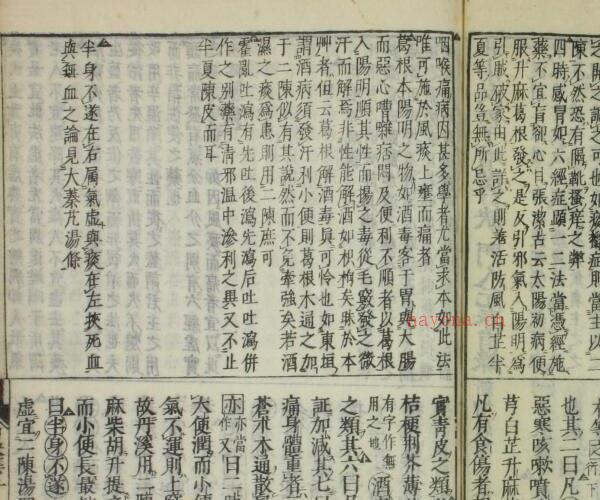 陳不然恐有隔靴搔痒之弊
四時感冒如六經症顕一二法當主以施
藥不宜 張潔古云太陽初病便
服升麻葛根發之是反引邪氣入陽明爲
引賊破家由此 之則 活防風白芷半
夏等品豈無所忌乎
咽喉痛病因甚多學者尤當求本文此法
唯可施於風痰上壅而痛者
葛根本陽明之物如酒毒客于胃與大腸
而惡心嘈雜痞悶及便利不順者以葛根
入陽明順其性而揚之毒從毛竅發之微
汗而解焉非性能解酒如根枸矣昧於本
艸者但云葛根解酒毒眞可怜也如東垣
謂酒病須發汗利小便則葛根木通之加
于二陳似有其說然而不免牽強矣若酒
濕之痰爲患則用二陳庶可
霍亂吐瀉有先吐後瀉先瀉后吐吐瀉併
作之別藥有淸邪溫中滲利之異又不止
半夏陳皮而耳
半身不遂在右屬氣虛與痰在左挾死血
與無血之論見大蓁艽湯條
也其二曰凡
惡寒咳嗽噴
芎白芷升麻
凡有食傷者
實靑皮之類
有字作無用之地 酒
桔梗荊芥薄
之類其六曰
証加減其七曰
痛身體重者
蒼朮木通散
亦亦當作又曰二
大便潤而小
氣不運則上
故丹溪用二陳
麻柴胡升提
而小便長最
曰半身不遂
虛宜二陳湯
nayona.cn